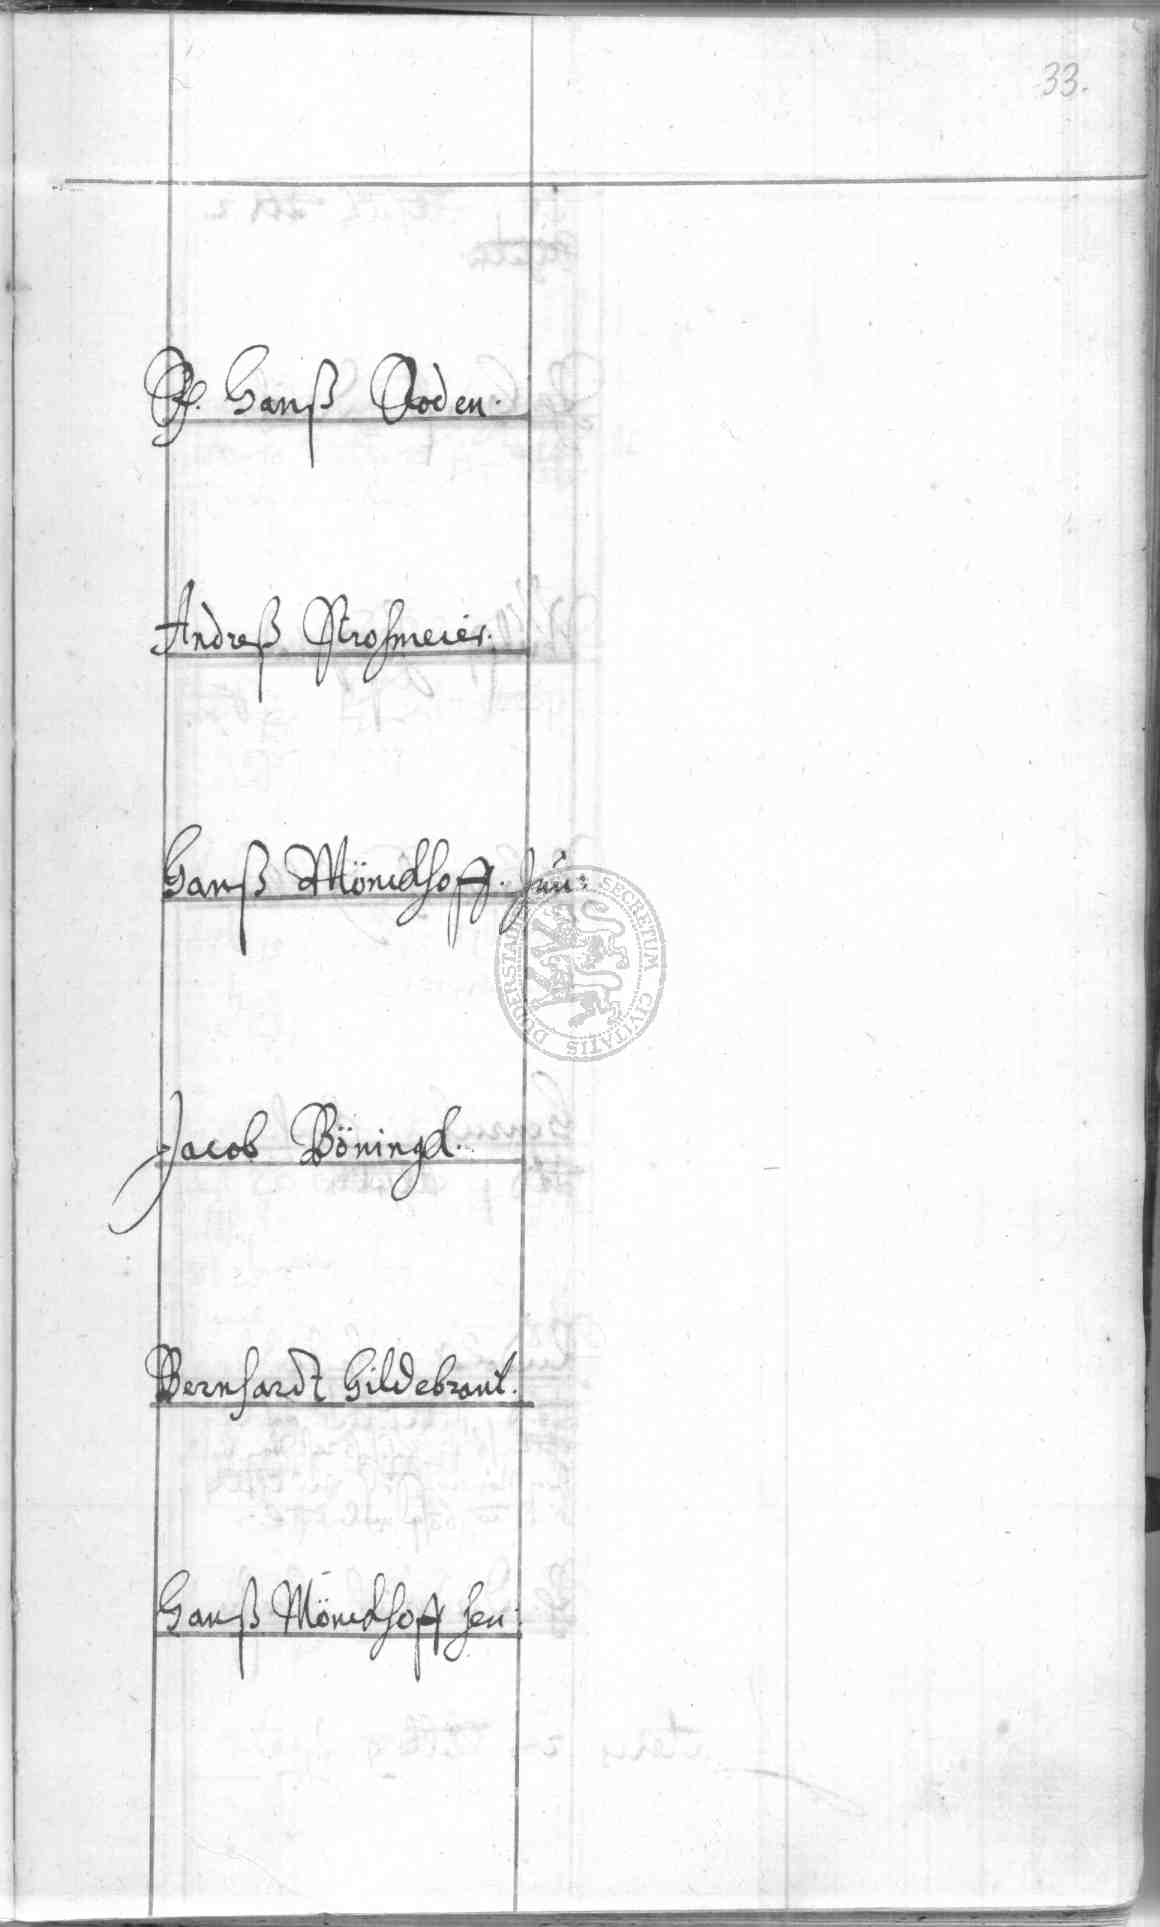 33.
H. Hanß Roden.
Andreß Strohmeier.
Hanß Mönchhoff. Jun:
SECRETUM CIVITATIS DUDERSTAD
Jacob Böning
Bernhardt Hildebrant.
Hanß Mönchhoff Sen: